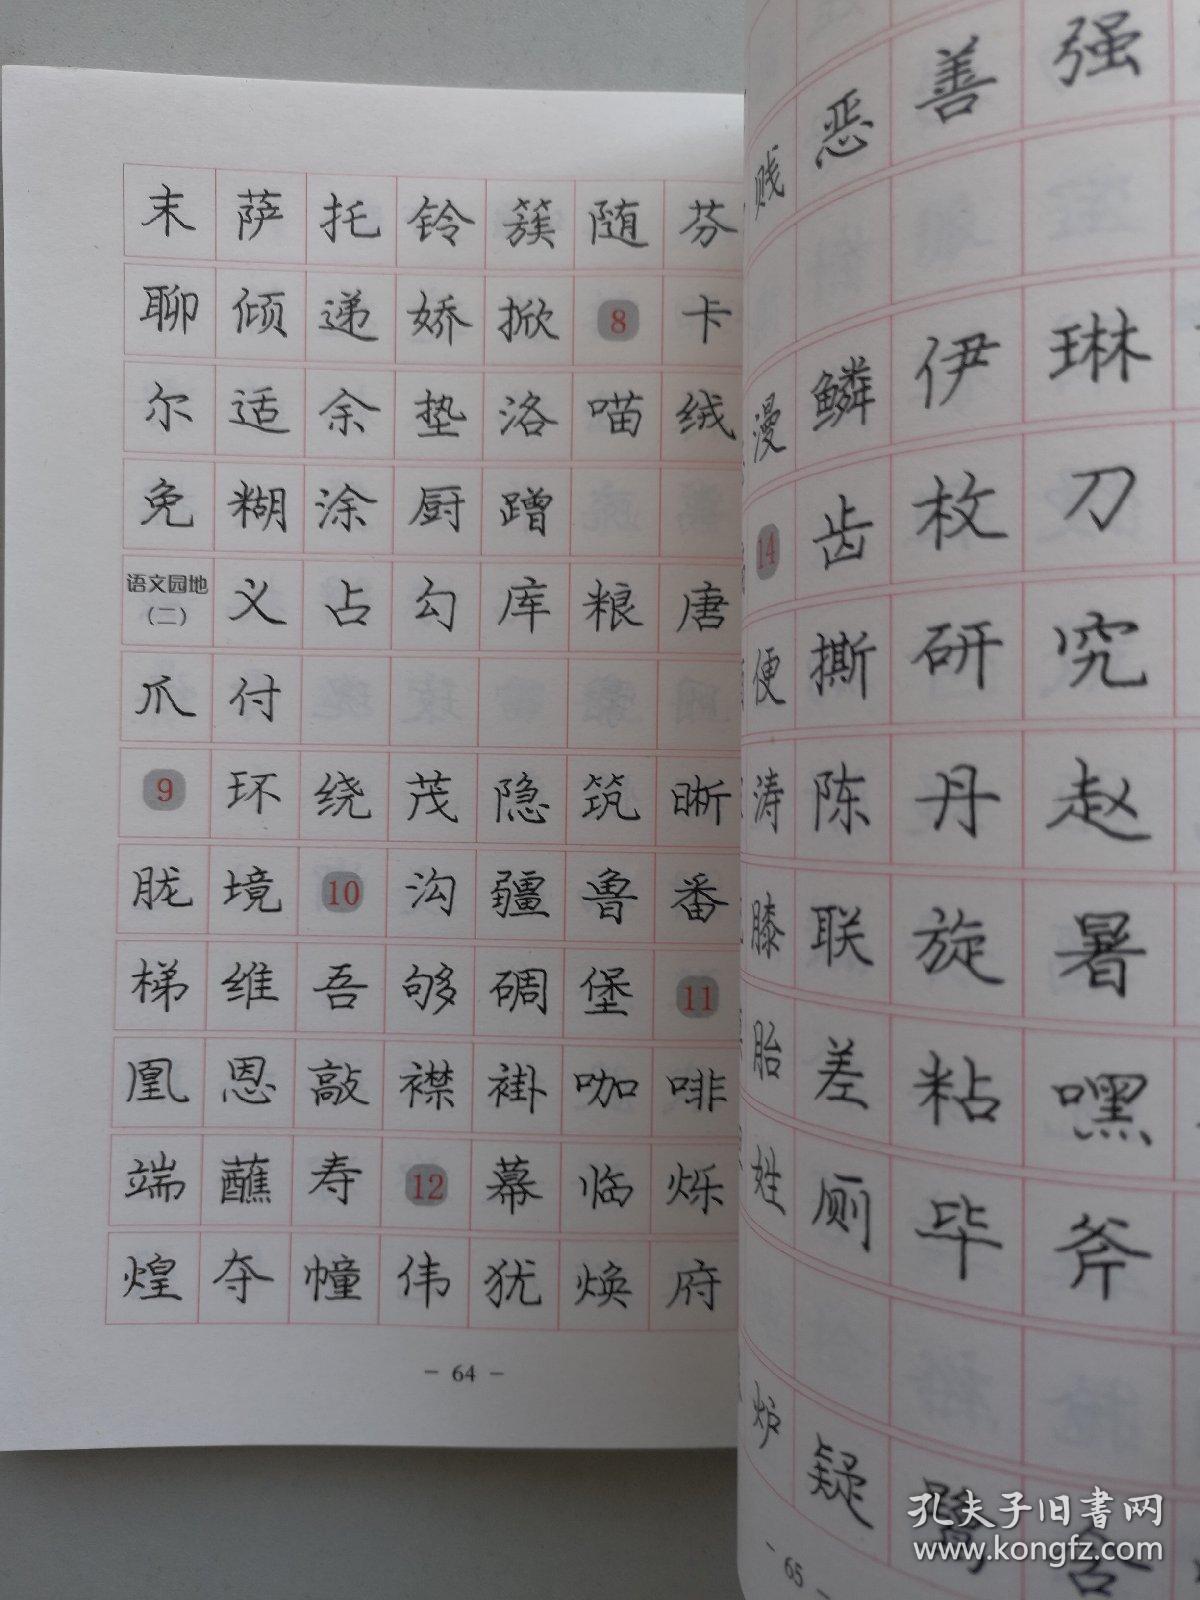 末 萨 托 铃 簇 随 芬
聊 倾 递 娇 掀 8 卡
尔 适 余 垫 洛 喵 绒
免 糊 涂 厨 蹭
语文园地（二） 义 占 勾 库 粮 唐
爪 付
9 环 绕 茂 隐 筑 晰
胧 境 10 沟 疆 鲁 番
梯 维 吾 够 碉 堡 11
凰 恩 敲 襟 褂 咖 啡
端 蘸 寿 12 幕 临 烁
煌 夺 幢 伟 犹 焕 府
- 64 -
贱 恶 善 强
漫 鳞 伊 琳
14 齿 枚 刀
便 撕 研 究
涛 陈 丹 赵
膝 联 旋 暑
胎 差 粘 嘿
姓 厕 毕 斧
炉 疑
- 65 -
孔夫子旧书网
www.kongfz.com